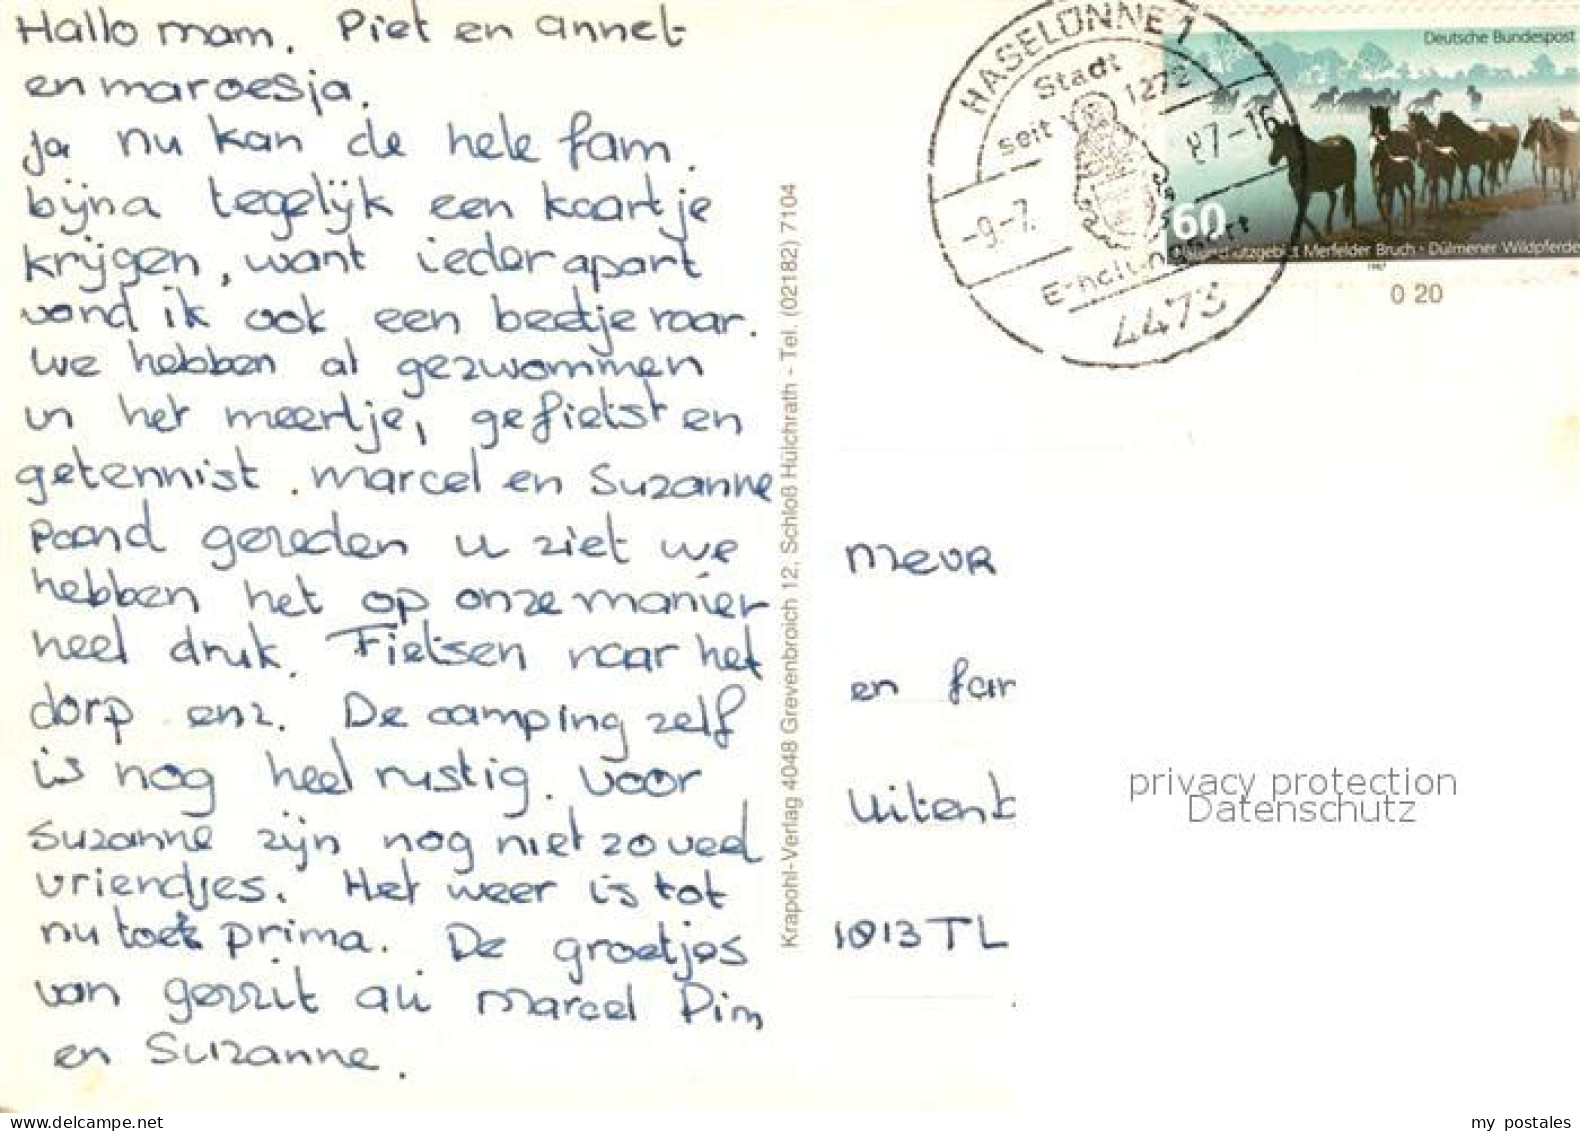 Hallo mam. Piet en annet
en maroesja.
ja nu kan de hele fam.
bijna tegelijk een kaartje
krijgen, want ieder apart
vond ik ook een beetje raar.
We hebben al gezwommen
in het meertje, gefietst en
getennist. marcel en Suzanne
paard gereden u ziet we
hebben het op onze manier
heel druk. Fietsen naar het
dorp enz. De camping zelf
is nog heel rustig. voor
Suzanne zijn nog niet zoveel
vriendjes. Het weer is tot
nu toe prima. De groetjes
van gerrit ali marcel Pim
en Suzanne.
Krapohl-Verlag 4048 Grevenbroich 12, Schloß Hülchrath - Tel. (02182) 7104
HASELÜNNE 1
Stadt
seit 1272
-9.-7. 87-16
4473
Deutsche Bundespost
60
Merfelder Bruch · Dülmener Wildpferde
1987
0 20
Mevr
en fam
Uitenb
1013 TL
privacy protection
Datenschutz
my postales